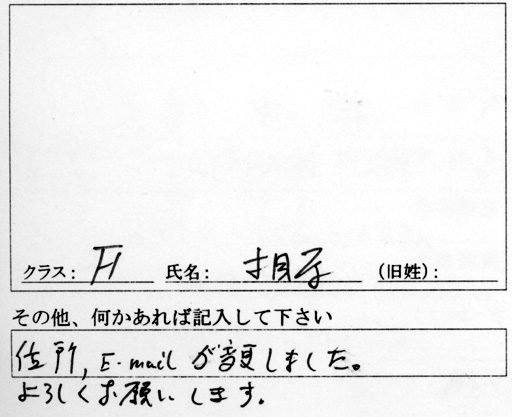 クラス: H 氏名: (旧姓):
その他、何かあれば記入して下さい
住所, E-mail が変更しました。
よろしくお願いします。